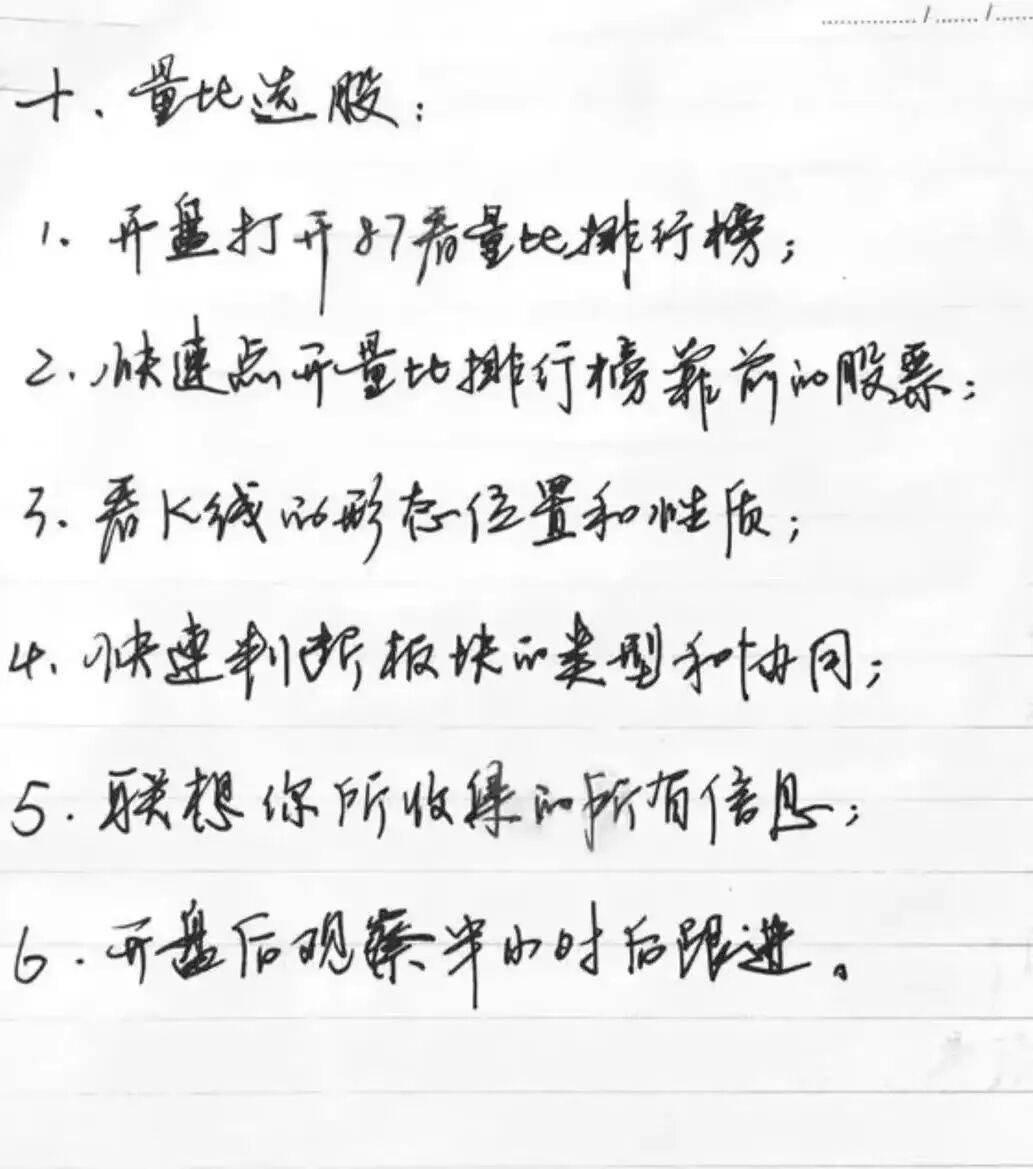 十、量比选股：
1、开盘打开87看量比排行榜；
2、快速点开量比排行榜靠前的股票；
3、看K线的形态位置和性质；
4、快速判断板块的类型和协同；
5、联想你所收集的所有信息；
6、开盘后观察半小时后跟进。